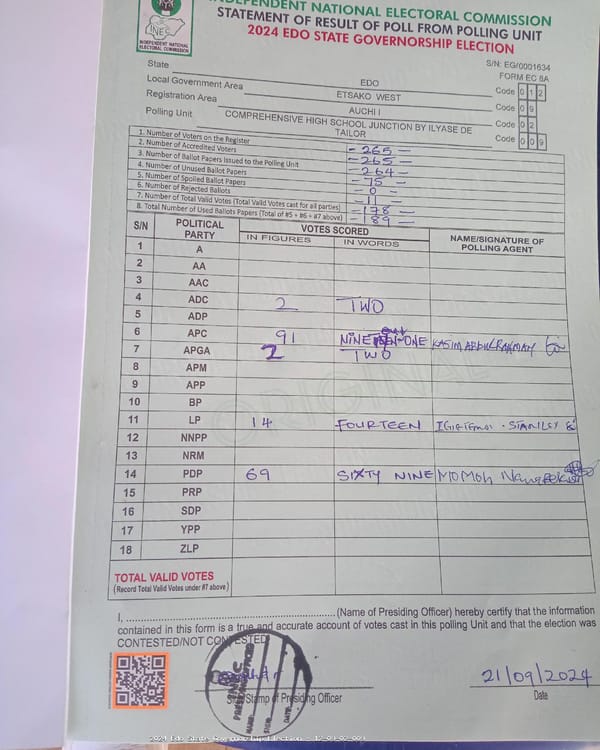 INDEPENDENT NATIONAL ELECTORAL COMMISSION
STATEMENT OF RESULT OF POLL FROM POLLING UNIT
2024 EDO STATE GOVERNORSHIP ELECTION
INEC
INDEPENDENT NATIONAL
ELECTORAL COMMISSION
S/N: EG/0001634
FORM EC 8A
State EDO Code 0 1 2
Local Government Area ETSAKO WEST Code 0 9
Registration Area AUCHI I Code 0 2
Polling Unit COMPREHENSIVE HIGH SCHOOL JUNCTION BY ILYASE DE TAILOR Code 0 0 9
1. Number of Voters on the Register - 265 -
2. Number of Accredited Voters - 265 -
3. Number of Ballot Papers Issued to the Polling Unit - 264 -
4. Number of Unused Ballot Papers - 75 -
5. Number of Spoiled Ballot Papers - 0 -
6. Number of Rejected Ballots - 11 -
7. Number of Total Valid Votes (Total Valid Votes cast for all parties) - 178 -
8. Total Number of Used Ballots Papers (Total of #5 + #6 + #7 above) - 189 -
S/N POLITICAL PARTY VOTES SCORED NAME/SIGNATURE OF POLLING AGENT
IN FIGURES IN WORDS
1 A
2 AA
3 AAC
4 ADC 2 TWO
5 ADP
6 APC 91 NINE -ONE KASIM ABDULRAHMAN
7 APGA 2 TWO
8 APM
9 APP
10 BP
11 LP 14 FOURTEEN STANLEY
12 NNPP
13 NRM
14 PDP 69 SIXTY NINE MOMOH
15 PRP
16 SDP
17 YPP
18 ZLP
ORIGINAL
TOTAL VALID VOTES
(Record Total Valid Votes under #7 above)
I, (Name of Presiding Officer) hereby certify that the information
contained in this form is a true and accurate account of votes cast in this polling Unit and that the election was
CONTESTED/NOT CONTESTED
INEC
PRESIDING OFFICER
NAME:
SIGN:
DATE:
Sign/Stamp of Presiding Officer
21/09/2024
Date